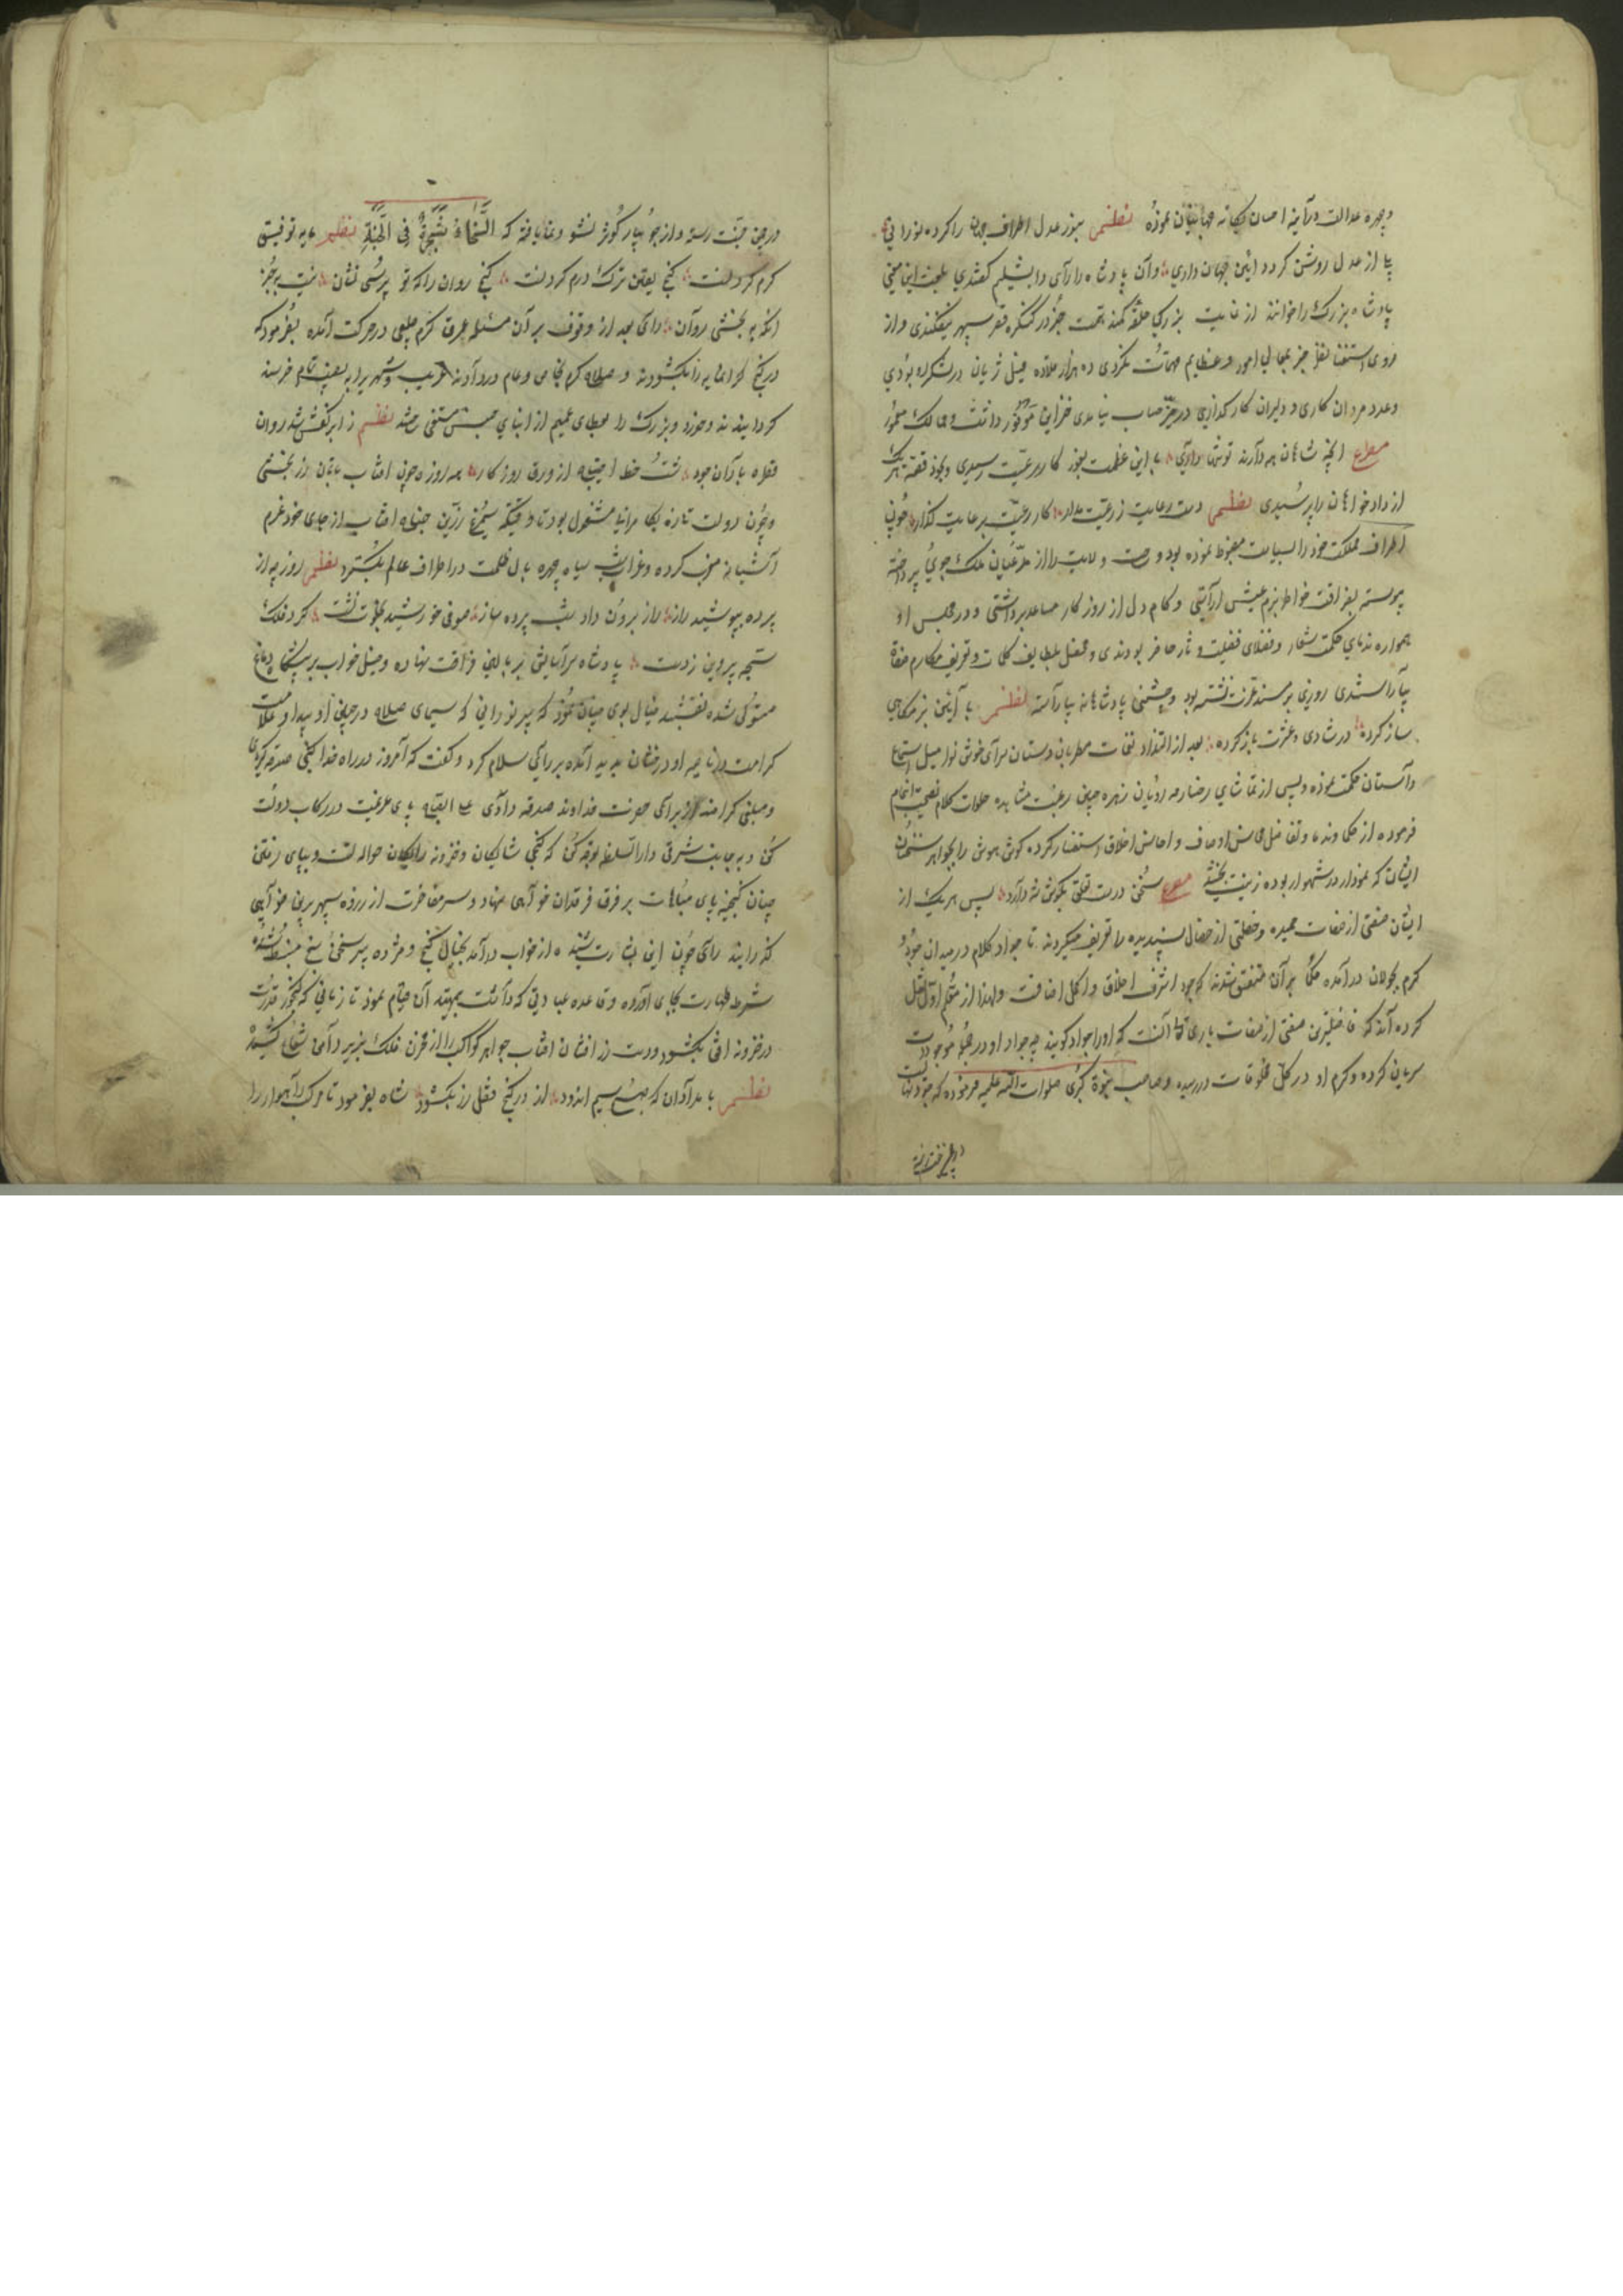 وچهره عدالت در آینه احسان بجهانیان نموده نظم بنور عدل اطراف جهان را کرده نورانی
بلی از عدل روشن گردد ائین جهان داری وآن پادشاه را رای دابشلیم گفتندی بلغت ایشان معنی
پادشاه بزرگ را خوانند از غایت بزرگی حلقه کمند همت جز در کنکره قصر سپهر نیفکندی واز
روی استغنا نظر جز بمعالی امور وعظایم مهمات نکردی ده هزار قلاده فیل ژیان در لشکر او بودی
وعدد مردان کاری و دلیران کارزاری در حیز حساب نیامدی خزاین موفور داشت و ممالک معمور
مصراع انچه شاهان همه دارند تو تنها داری با این عظمت بغور کار رعیت رسیدی وبخود قصه هر یک
از دادخواهان را پرسیدی نظم دست رعایت ز رعیت مدار کار رعیت برعایت گذار چون
اطراف مملکت خود را بسیاست مضبوط نموده بود و ساحت ولایت را از مدعیان ملک جوی پرداخته
پیوسته بفراغت خاطر بزم عیش اراستی وکام دل از روزگار مساعد برداشتی و در مجلس او
همواره ندمای حکمت شعار وفضلای فضیلت دثار حاضر بودندی و محفل بلطایف کلمات و تعریف مکارم صفات
بیاراستندی روزی بر مسند عزت نشسته بود وجشنی پادشاهانه بیاراسته نظم با آئین بزمگاهی
ساز کرده در شادی وعشرت باز کرده بعد از التذاذ نغمات مطربان دستان سرای خوش نوا میل استماع
داستان حکمت نموده وپس از تماشای رخسار مه رویان زهره جبین رغبت مشاهده کلام نصیحت انجام
فرموده از حکما وندما وتفاضل محاسن اوصاف و احاسن اخلاق استفسار کرده گوش هوش را بجواهر سخنان
ایشان که نمودار در شاهوار بوده زینت بخشید مصراع سخن درست تعلق بگوش شه دارد پس هر یک از
ایشان صفتی از صفات حمیده وخصلتی از خصال پسندیده را تعریف میکردند تا جواد کلام در میدان جود و
کرم بجولان در آمده حکما بر آن متفق شدند که جود اشرف اخلاق و اکمل اوصافست ولهذا از معلم اول نقل
کرده اند که فاضلترین صفتی از صفات باری تعالی آنست که او را جواد گویند چه جود او در جمله موجودات
سریان کرده وکرم او در کل مخلوقات رسیده وصاحب نبوة کبری صلوات الله علیه فرموده که جود نهالیست
در چمن جنت رسته واز جویبار کوثر نشو ونما یافته که السخاء شجرة فی الجنة نظم مایه توفیق
کرم کردنست گنج یقین ترک درم کردنست گنج روان را که تو پرسی نشان نیست بجز
آنکه ببخشی روان رای بعد از وقوف بر آن مسئله عرق کرم جبلی در حرکت آمده بفرمود که
در گنج گرانمایه را بگشودند و صلای کرم بخاص و عام در دادند غریب وشهری را بنصیب تمام خرسند
گردانیدند وخورد وبزرگ را بعطای عمیم از ابنای جنس مستغنی ساختند نظم ز ابر کفش شد روان
قطره باران جود شست خط احتیاج از ورق روزگار همه روز چون افتاب تابان بزر بخشی
وچون دولت تازه بکامرانی مشغول بود تا وقتیکه سیمرغ زرین جناح افتاب از جای خود عزم
آشیانه مغرب کرده وغراب شب سیاه چهره بال ظلمت در اطراف عالم بگسترد نظم روز چو از
پرده بپوشید راز راز برون داد شب پرده ساز صوفی خورشید بخلوت نشست کرد فلک
سبحه پروین ز دست پادشاه سر آسایش بر بالین فراغت نهاده وخیل خواب بر پیشگاه دماغ
مستولی شده نقشبند خیال بوی چنان نمود که پیر نورانی که سیمای صلاح در جبین او پیدا وعلامت
کرامت در ناصیه او درخشان پدید آمده بر رای سلام کرد وگفت که امروز در راه خدا گنجی صدقه کردی
ومبلغی گرامند از برای خداوند صدقه دادی علی الصباح پای عزیمت در رکاب دولت
کن وبجانب مشرق دار السلطنه توجه کن که گنجی شایگان وخزینه رایگان حواله تست وبیافتن
چنان گنجینه پای مباهات بر فرق فرقدان خواهی نهاد وسر مفاخرت از ذروه سپهر برین خواهی
گذرانید رای چون این بشارت شنید از خواب درآمد بخیال گنج و مژده پیر سخن سنج منبسط شده
شرط طهارت بجای آورده وقاعده عبادتی که داشت بتمهید آن قیام نمود تا زمانی که گنجور قدرت
در خزینه افق بگشود ودست زرافشان افتاب جواهر کواکب را از مخزن فلک بزیر دامن شعاع کشید
نظم بامدادان که صبح سیم اندود از در گنج قفل زر بگشود شاه بفرمود تا مرکب راهوار را